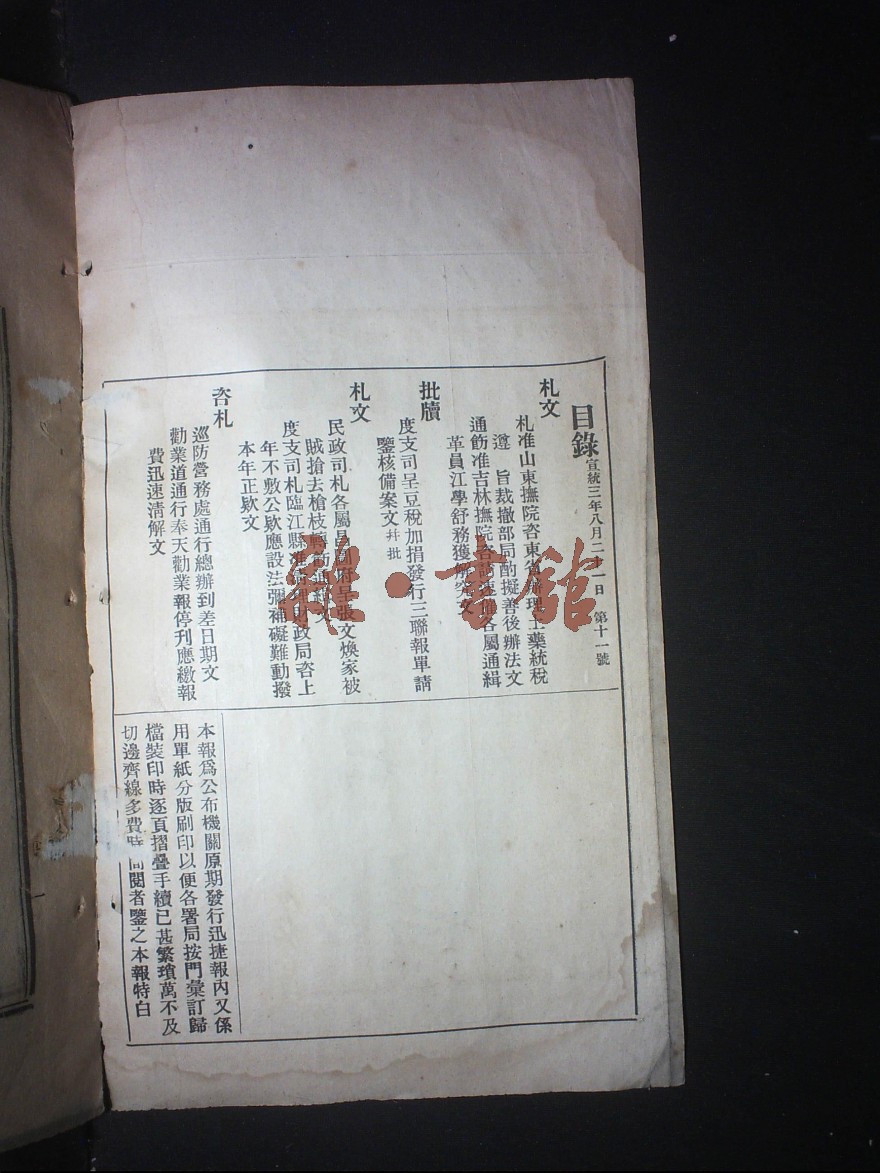 目錄 宣統三年八月二十一日 第十一號
札文
札准山東撫院咨東省辦理土藥統稅
遵 旨裁撤部局酌擬善後辦法文
通飭准吉林撫院咨各屬通緝
革員江學舒務獲解究文
批牘
度支司呈豆稅加捐發行三聯報單請
鑒核備案文 幷批
札文
民政司札各屬昌圖府呈張文煥家被
賊搶去槍枝轉飭通緝文
度支司札臨江縣財政局咨上
年不敷公欵應設法彌補礙難動撥
本年正欵文
咨札
巡防營務處通行總辦到差日期文
勸業道通行奉天勸業報停刊應繳報
費迅速清解文
本報爲公布機關原期發行迅捷報內又係
用單紙分版刷印以便各署局按門彙訂歸
檔裝印時逐頁摺疊手續已甚繁瑣萬不及
切邊齊線多費時間閱者鑒之本報特白
雜·書館